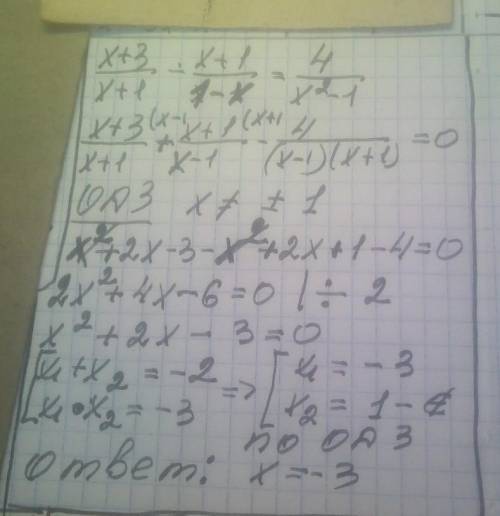 (x+3)/(x+1) - (x+1)/(1-x) = 4/(x²-1)
(x+3)/(x+1) (x-1 + (x+1)/(x-1) (x+1 - 4/((x-1)(x+1)) = 0
ОДЗ x ≠ ± 1
x²+2x-3-x²+2x+1-4=0
2x²+4x-6=0 | ÷ 2
x²+2x-3=0
[x₁+x₂=-2 => [x₁=-3
[x₁•x₂=-3 [x₂=1-¢
по ОДЗ
Ответ: x=-3